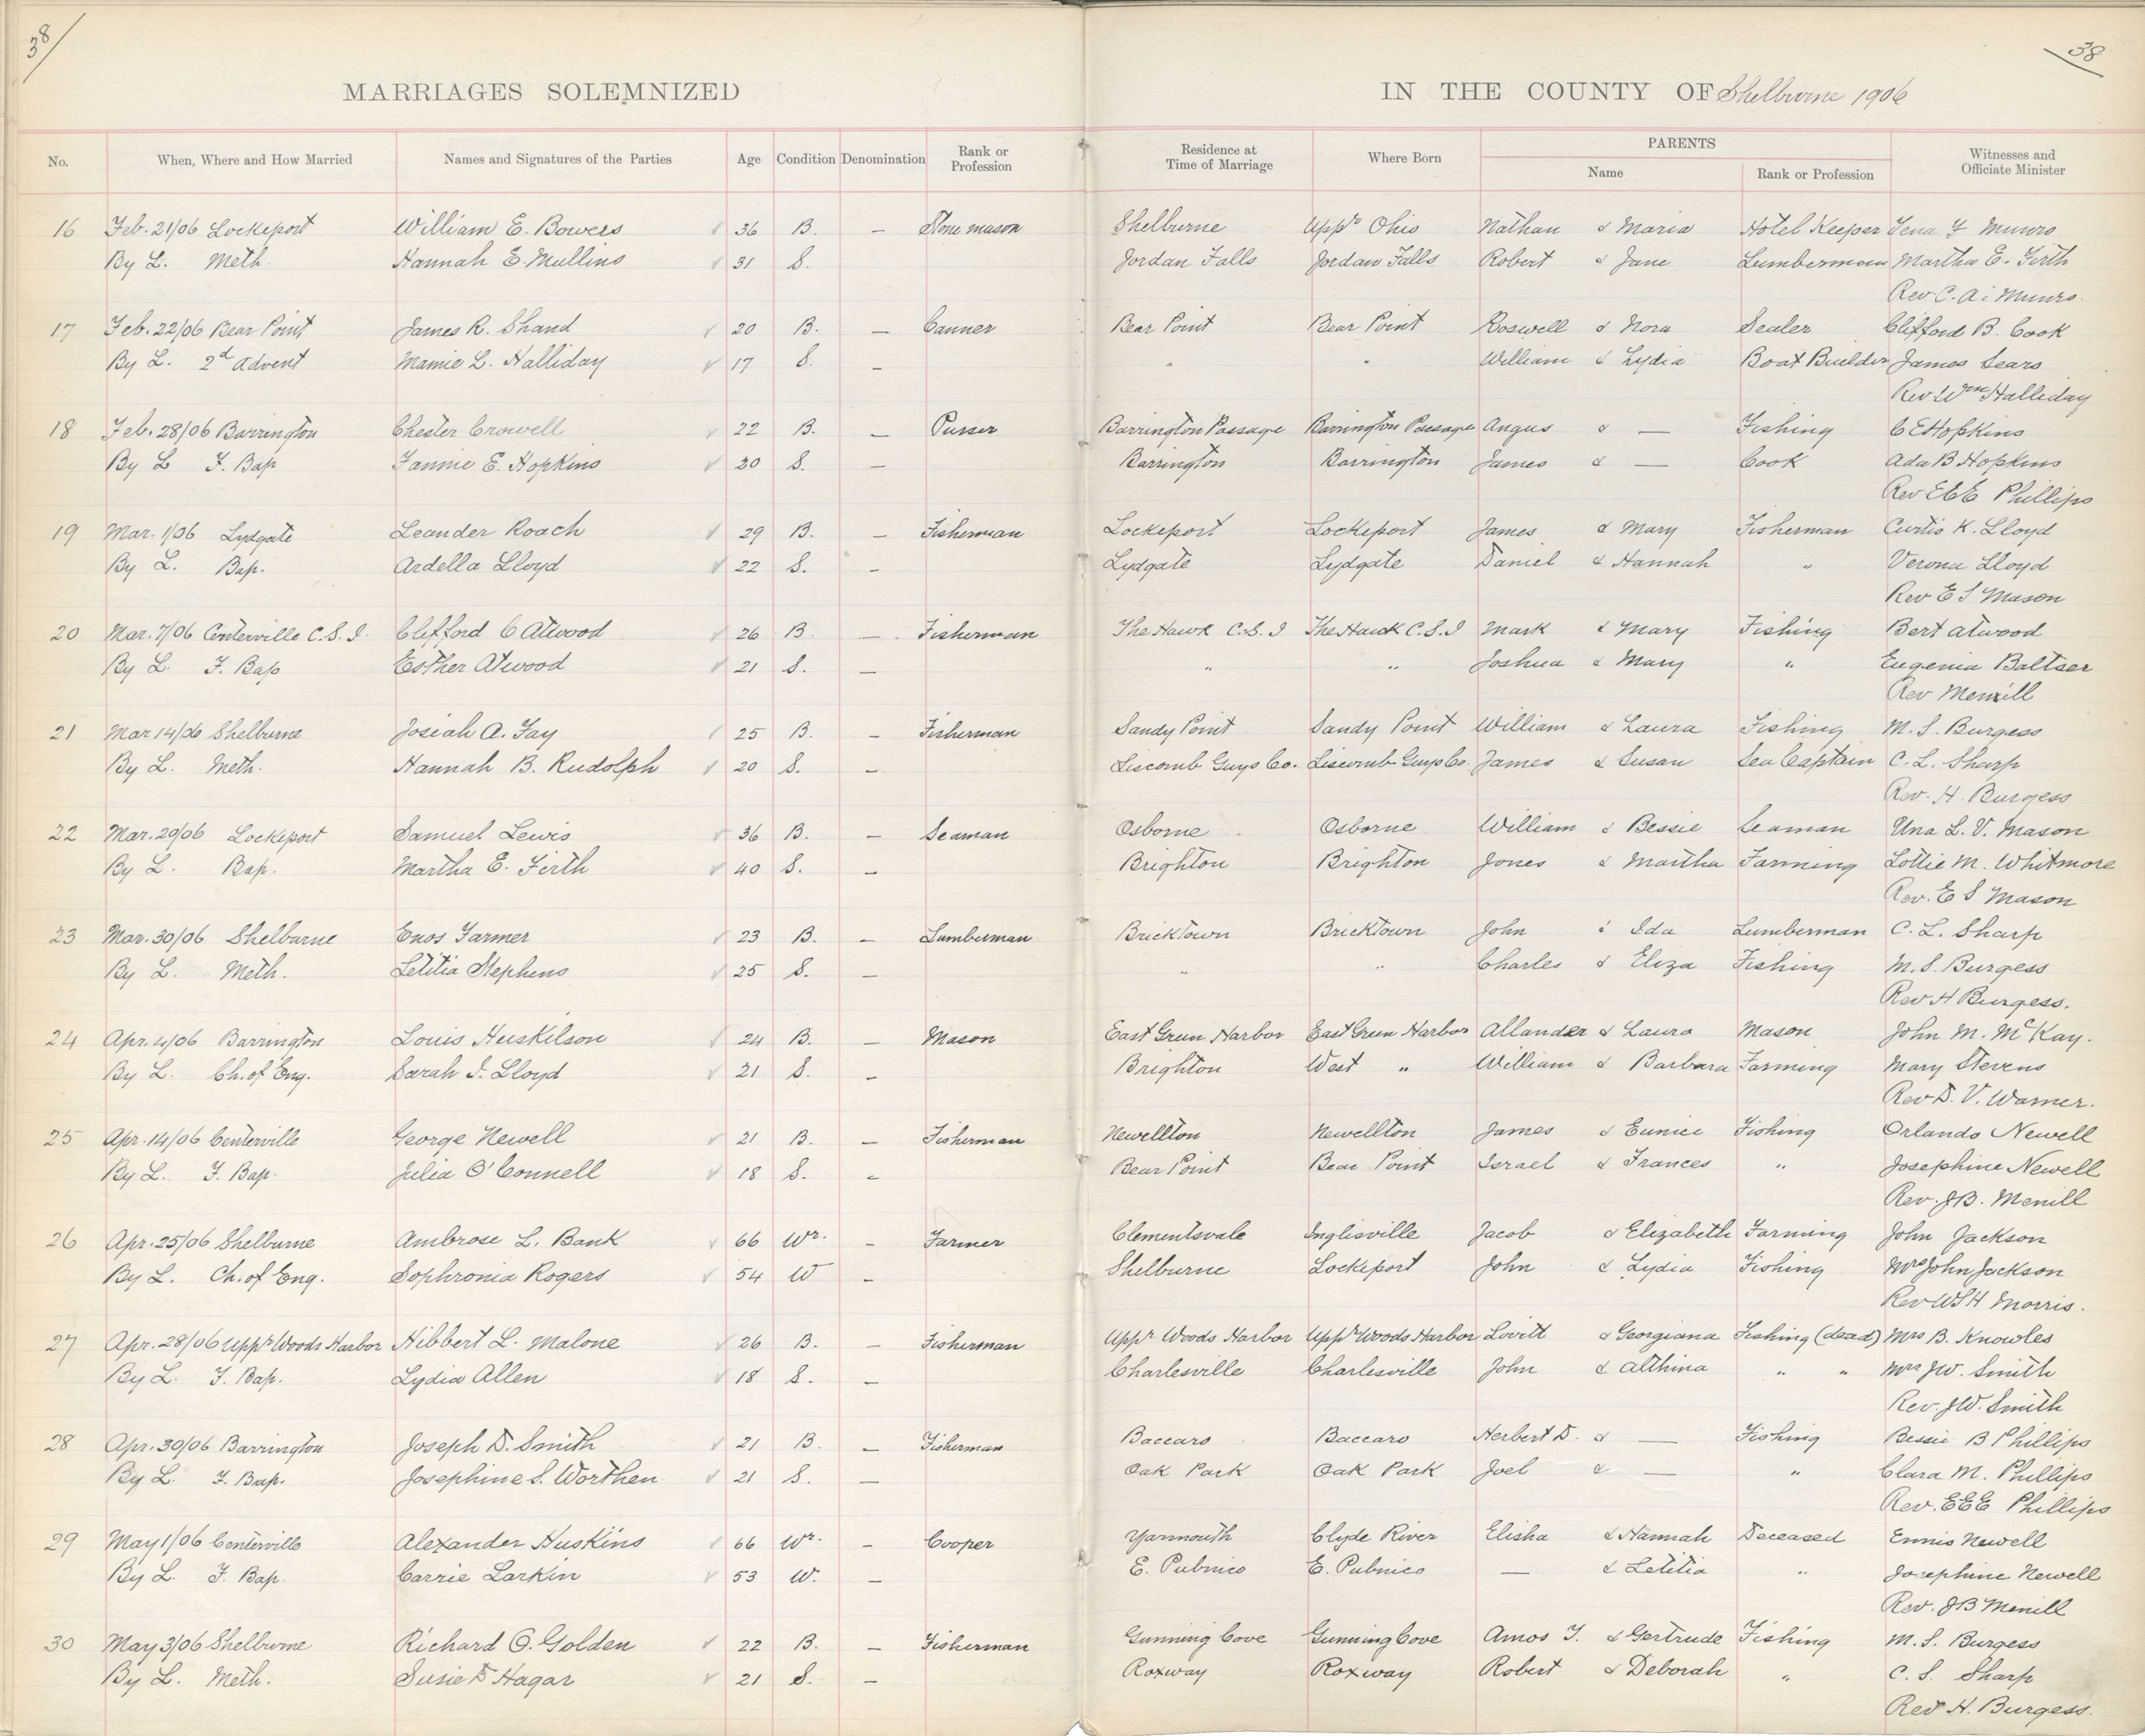 38
38
MARRIAGES SOLEMNIZED IN THE COUNTY OF Shelburne 1906
No. When, Where and How Married Names and Signatures of the Parties Age Condition Denomination Rank or Profession Residence at Time of Marriage Where Born PARENTS Name Rank or Profession Witnesses and Officiate Minister
16 Feb. 21/06 Lockeport William E. Bowers 36 B. — Stone mason Shelburne Uppr Ohio Nathan & Maria Hotel Keeper Lena F Munro
By L. Meth. Hannah E. Mullins 31 S. Jordan Falls Jordan Falls Robert & Jane Lumberman Martha E. Firth
Rev C. A. Munro.
17 Feb. 22/06 Bear Point James R. Shand 20 B. — Canner Bear Point Bear Point Roswell & Nora Sealer Clifford B. Cook
By L. 2d Advent Mamie L. Halliday 17 S. — " " William & Lydia Boat Builder James Sears
Rev Wm Halliday
18 Feb. 28/06 Barrington Chester Crowell 22 B. — Purser Barrington Passage Barrington Passage Angus & — Fishing C E Hopkins
By L F. Bap Fannie E. Hopkins 30 S. — Barrington Barrington James & — Cook Ada B Hopkins
Rev E E E Phillips
19 Mar. 1/06 Lydgate Leander Roach 29 B. — Fisherman Lockeport Lockeport James & Mary Fisherman Curtis K. Lloyd
By L. Bap. Ardella Lloyd 22 S. — Lydgate Lydgate Daniel & Hannah " Verona Lloyd
Rev E S Mason
20 Mar. 7/06 Centerville C.S.I. Clifford C Atwood 26 B. — Fisherman The Hawk C.S.I The Hawk C.S.I Mark & Mary Fishing Bert Atwood
By L. F. Bap Esther Atwood 21 S. — " " Joshua & Mary " Eugenia Baltser
Rev Merrill
21 Mar 14/06 Shelburne Josiah A. Fay 25 B. — Fisherman Sandy Point Sandy Point William & Laura Fishing M. S. Burgess
By L. Meth. Hannah B. Rudolph 20 S. — Liscomb Guys Co. Liscomb Guys Co. James & Susan Sea Captain C. L. Sharp
Rev. H. Burgess
22 Mar. 29/06 Lockeport Samuel Lewis 36 B. — Seaman Osborne Osborne William & Bessie Seaman Una L. V. Mason
By L. Bap. Martha E. Firth 40 S. — Brighton Brighton Jones & Martha Farming Lottie M. Whitmore
Rev. E S Mason
23 Mar. 30/06 Shelburne Enos Farmer 23 B. — Lumberman Bricktown Bricktown John & Ida Lumberman C. L. Sharp
By L. Meth. Letitia Stephens 25 S. — " " Charles & Eliza Fishing M. S. Burgess
Rev H Burgess.
24 Apr. 4/06 Barrington Louis Huskilson 24 B. — Mason East Green Harbor East Green Harbor Allander & Laura Mason John M. McKay.
By L. Ch. of Eng. Sarah I. Lloyd 21 S. — Brighton West " William & Barbara Farming Mary Stevens
Rev D. V. Warner.
25 Apr. 14/06 Centerville George Newell 21 B. — Fisherman Newellton Newellton James & Eunice Fishing Orlando Newell
By L. F. Bap. Julia O'Connell 18 S. — Bear Point Bear Point Israel & Frances " Josephine Newell
Rev. J B. Merrill
26 Apr. 25/06 Shelburne Ambrose L. Bank 66 Wr. — Farmer Clementsvale Inglisville Jacob & Elizabeth Farming John Jackson
By L. Ch. of Eng. Sophronia Rogers 54 W — Shelburne Lockeport John & Lydia Fishing Mrs John Jackson
Rev W S H Morris.
27 Apr. 28/06 Uppr Woods Harbor Hibbert L. Malone 26 B. — Fisherman Uppr Woods Harbor Uppr Woods Harbor Lovitt & Georgiana Fishing (dead) Mrs B. Knowles
By L. F. Bap. Lydia Allen 18 S. — Charlesville Charlesville John & Althina " " Mrs J W. Smith
Rev. J W. Smith
28 Apr. 30/06 Barrington Joseph D. Smith 21 B. — Fisherman Baccaro Baccaro Herbert D. & — Fishing Bessie B Phillips
By L. F. Bap. Josephine S. Worthen 21 S. — Oak Park Oak Park Joel & — " Clara M. Phillips
Rev. E E E Phillips
29 May 1/06 Centerville Alexander Huskins 66 Wr. — Cooper Yarmouth Clyde River Elisha & Hannah Deceased Ennis Newell
By L. F. Bap. Carrie Larkin 53 W. — E. Pubnico E. Pubnico — & Letitia " Josephine Newell
Rev. J B Merrill
30 May 3/06 Shelburne Richard O. Golden 22 B. — Fisherman Gunning Cove Gunning Cove Amos T. & Gertrude Fishing M. S. Burgess
By L. Meth. Susie D Hagar 21 S. — Roxway Roxway Robert & Deborah " C. S. Sharp
Rev H. Burgess.